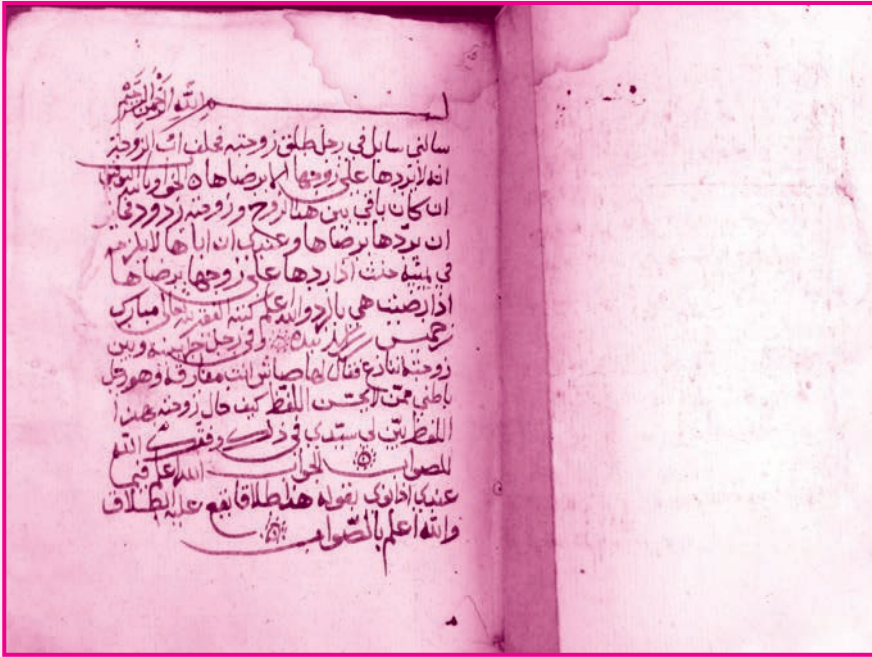 بسم الله الرحمن الرحيم
سالني سايل في رجل طلق زوجته فحلف اب الزوجة
انه لا يردها على زوجها الا برضاها
ان كان باقي بين هذا الزوج وزوجته ردود فجايز
ان يردها برضاها وعندي ان اباها لا يلزمه
في يمينه حنث اذا ردها على زوجها برضاها
اذا رضيت هي بالرد والله اعلم كتبه الفقير لله مبارك
بن خميس بيده وفي رجل بينه وبين
زوجته تنازع فقال لها انت مفارقه وهو رجل
باطني ممن لا يحسن اللفظ كيف حال زوجته بهذا
اللفظ بين لي سيدي في ذلك وفقك الله
للصواب الجواب الله اعلم فيما
عندي اذا نوى بقوله هذا طلاقا يقع عليه الطلاق
والله اعلم بالصواب